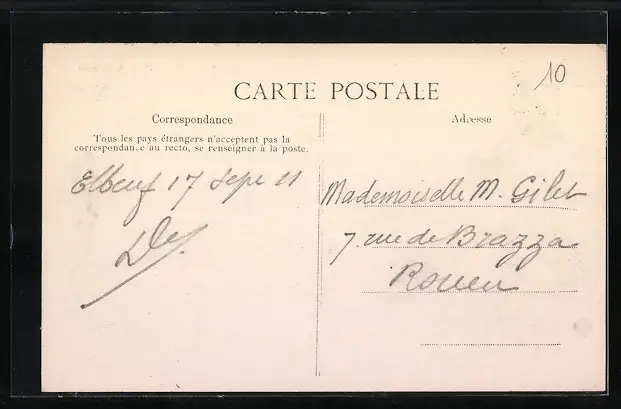 10
CARTE POSTALE
Correspondance
Adresse
Tous les pays étrangers n'acceptent pas la
correspondance au recto, se renseigner à la poste.
Elbeuf 17 Sept 11
Mademoiselle M. Gilet
7. rue de Brazza
Rouen